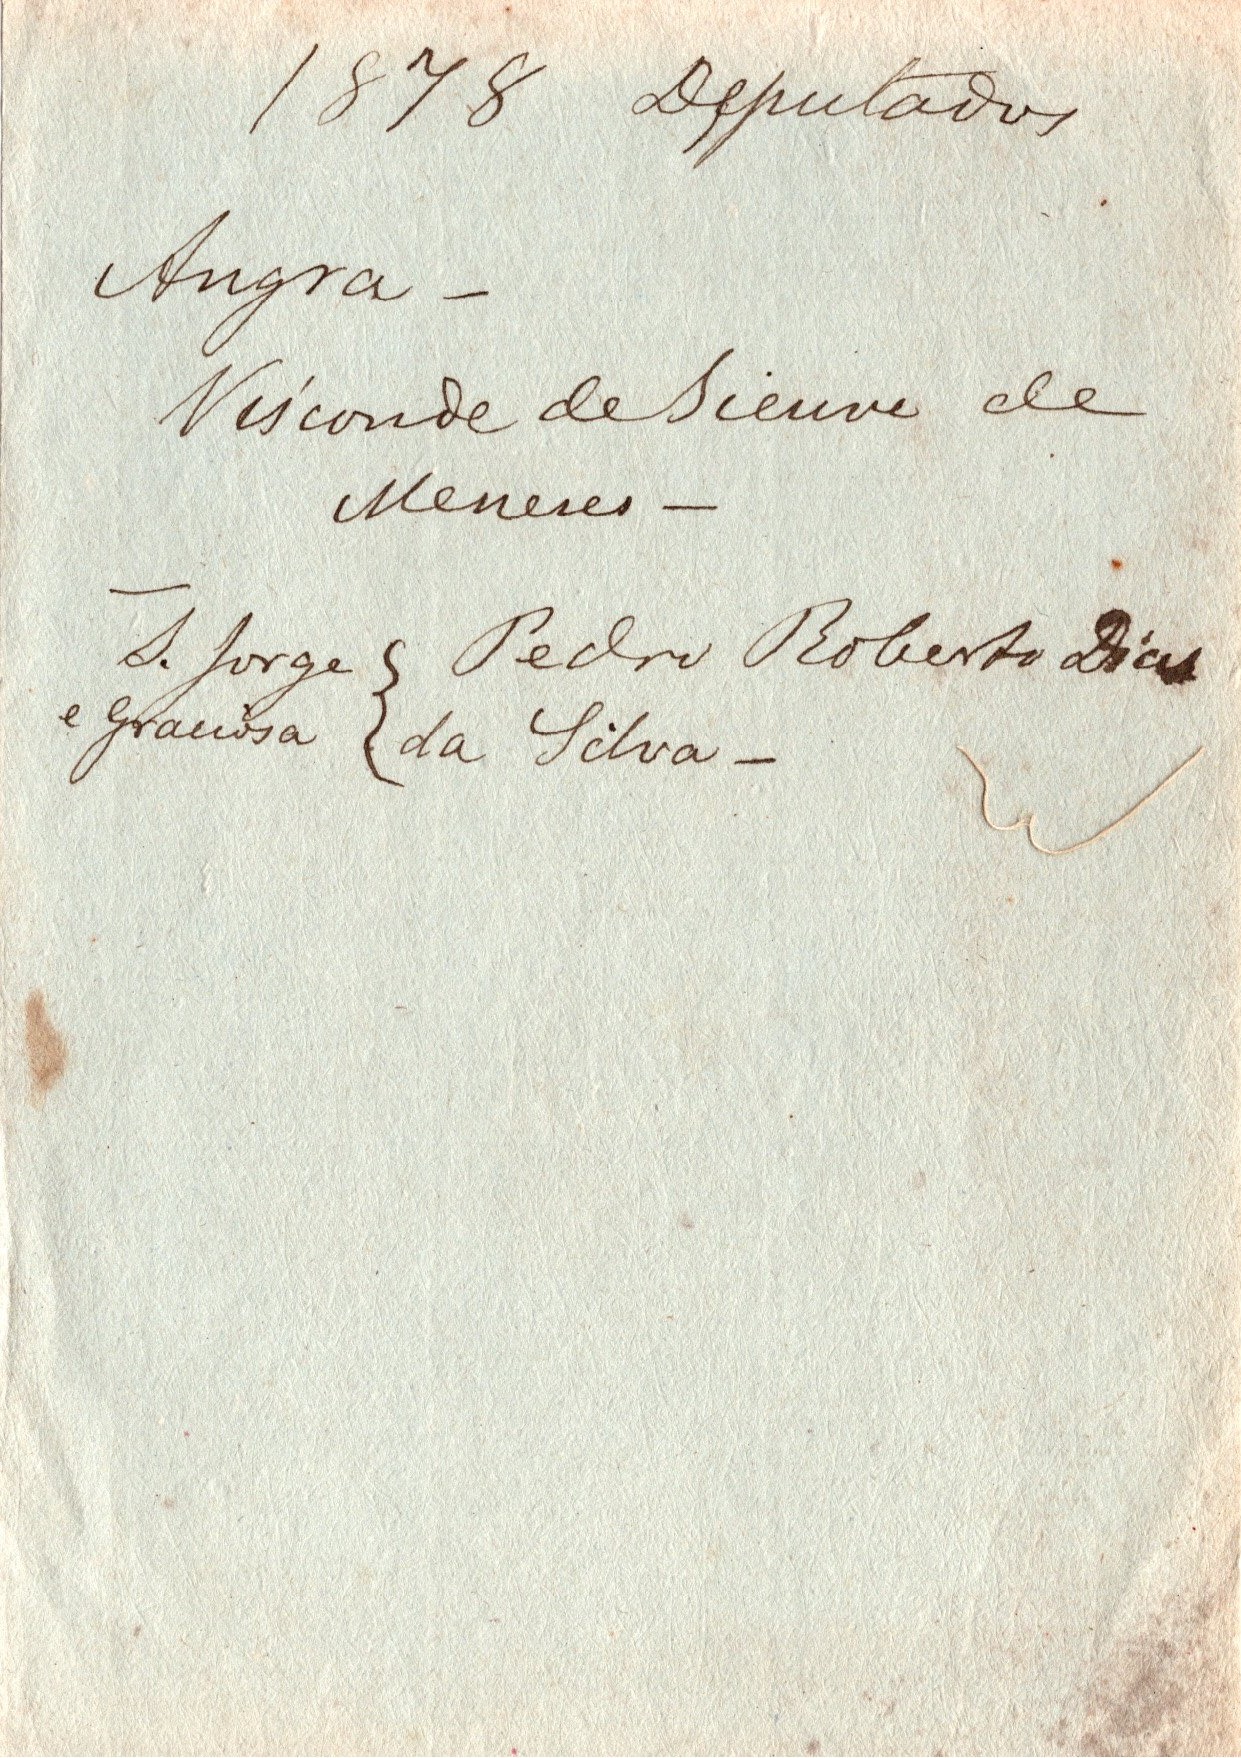 1878 Deputados
Angra -
Visconde de Sieuve de
Meneses -
S. Jorge { Pedro Roberto Dias
e Graciosa { da Silva -